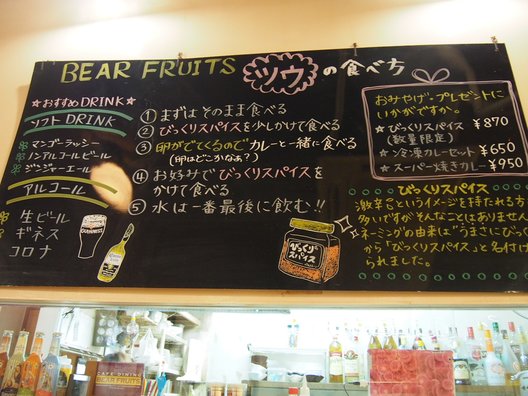 BEAR FRUITS ツウの食べ方
☆おすすめDRINK☆
ソフトDRINK
マンゴーラッシー
ノンアルコールビール
ジンジャーエール
アルコール
生ビール
ギネス
コロナ
GUINNESS
① まずはそのまま食べる
② びっくりスパイスを少しかけて食べる
③ 卵がでてくるのでカレーと一緒に食べる
(卵はどこかなぁ?)
④ お好みでびっくりスパイスを
かけて食べる
⑤ 水は一番最後に飲む!!
びっくり
スパイス
おみやげ・プレゼントに
いかがですか。
★びっくりスパイス ¥870
(数量限定)
☆冷凍カレーセット ¥650
★スーパー焼きカレー ¥950
びっくりスパイス
激辛というイメージを持たれる方
多いですがそんなことはありません
ネーミングの由来は"うまさにびっく
から「びっくりスパイス」と名付け
られました。
CAFE DINING
BEAR FRUITS